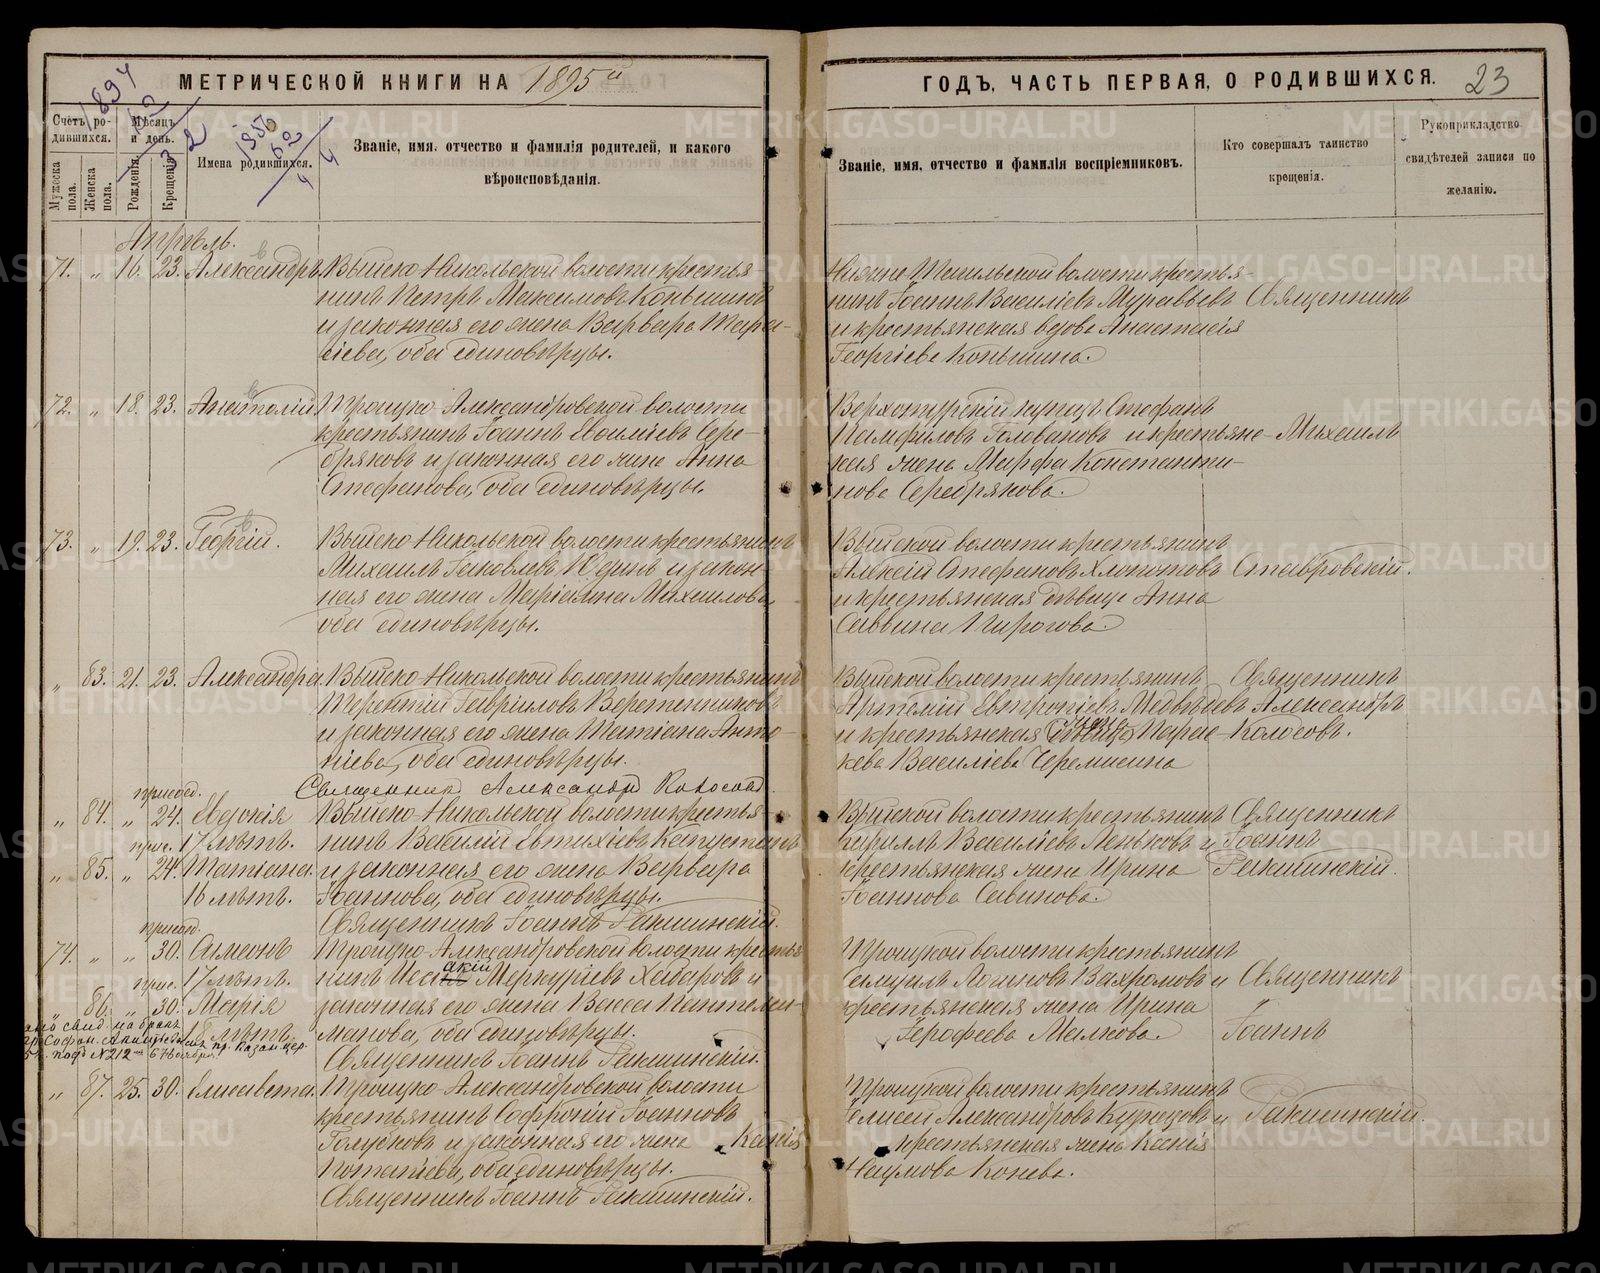 МЕТРИЧЕСКОЙ КНИГИ НА 1895й
ГОДЪ, ЧАСТЬ ПЕРВАЯ, О РОДИВШИХСЯ. 23
Счетъ родившихся.
Мужеска пола.
Женска пола.
Мѣсяцъ и день.
Рожденія.
Крещенія.
Имена родившихся.
Званіе, имя, отчество и фамилія родителей, и какого
вѣроисповѣданія.
Званіе, имя, отчество и фамилія воспріемниковъ.
Кто совершалъ таинство
крещенія.
Рукоприкладство
свидѣтелей записи по
желанію.
Апрѣль.
71. „ 16. 23. Александръ. Выйско-Никольской волости крестья-
нинъ Петръ Максимовъ Коньшинъ
и законная его жена Варвара Тара-
сіева, оба единовѣрцы.
Нижне-Тагильской волости крестья-
нинъ Іоаннъ Василіевъ Муравьевъ
и крестьянская вдова Анастасія
Георгіева Коньшина.
Священникъ
72. „ 18. 23. Анатолій Троицко-Александровской волости
крестьянинъ Іоаннъ Василіевъ Сере-
бряковъ и законная его жена Анна
Стефанова, оба единовѣрцы.
Верхотурскій купецъ Стефанъ
Памфиловъ Головановъ и крестьянс-
кая жена Марфа Константи-
нова Серебрякова.
Михаилъ
73. „ 19. 23. Георгій. Выйско-Никольской волости крестьянинъ
Михаилъ Іаковлевъ Юдинъ и закон-
ная его жена Маріамна Михаилова,
оба единовѣрцы.
Выйской волости крестьянинъ
Алексій Стефановъ Хлопотовъ
и крестьянская дѣвица Анна
Саввина Пирогова.
Ставровскій.
„ 83. 21. 23. Александра. Выйско-Никольской волости крестьянинъ
Терентій Гавріиловъ Веретенниковъ
и законная его жена Татіана Анто-
ніева, оба единовѣрцы.
Священник Александр Колосов.
Выйской волости крестьянинъ
Артемій Евтропіевъ Медвѣдевъ
и крестьянская жена Парас-
кева Василіева Черемисина
Священникъ
Александръ
Колосовъ.
присоед.
„ 84. „ 24. Евдокія Выйско-Никольской волости крестья-
прис. 17 лѣтъ. нинъ Василій Евтихіевъ Капустинъ
„ 85. „ 24. Татіана. и законная его жена Варвара
16 лѣтъ. Іоаннова, оба единовѣрцы.
Священникъ Іоаннъ Ракшинскій.
Выйской волости крестьянинъ
Кириллъ Василіевъ Леньковъ и
крестьянская жена Ирина
Іоаннова Савинова.
Священникъ
Іоаннъ
Ракшинскій.
присоед.
74. „ „ 30. Симеонъ Троицко-Александровской волости крестья
прис. 17 лѣтъ. нинъ Исаакій Меркуріевъ Хабаровъ и
„ 86. „ 30. Марія законная его жена Васса Пантелеи-
18 лѣтъ. монова, оба единовѣрцы.
Священникъ Іоаннъ Ракшинскій.
Троицкой волости крестьянинъ
Самуилъ Логиновъ Вахромовъ и
крестьянская жена Ирина
Іерофеева Малкова.
Священникъ
„
Іоаннъ
„ 87. 25. 30. Елисавета. Троицко-Александровской волости
крестьянинъ Софроній Іоанновъ
Голубковъ и законная его жена Ксенія
Потапіева, оба единовѣрцы.
Священникъ Іоаннъ Ракшинскій.
Троицкой волости крестьянинъ
Елисей Александровъ Кузнецовъ и
крестьянская жена Ксенія
Наумова Конева.
Ракшинскій.
METRIKI.GASO-URAL.RU